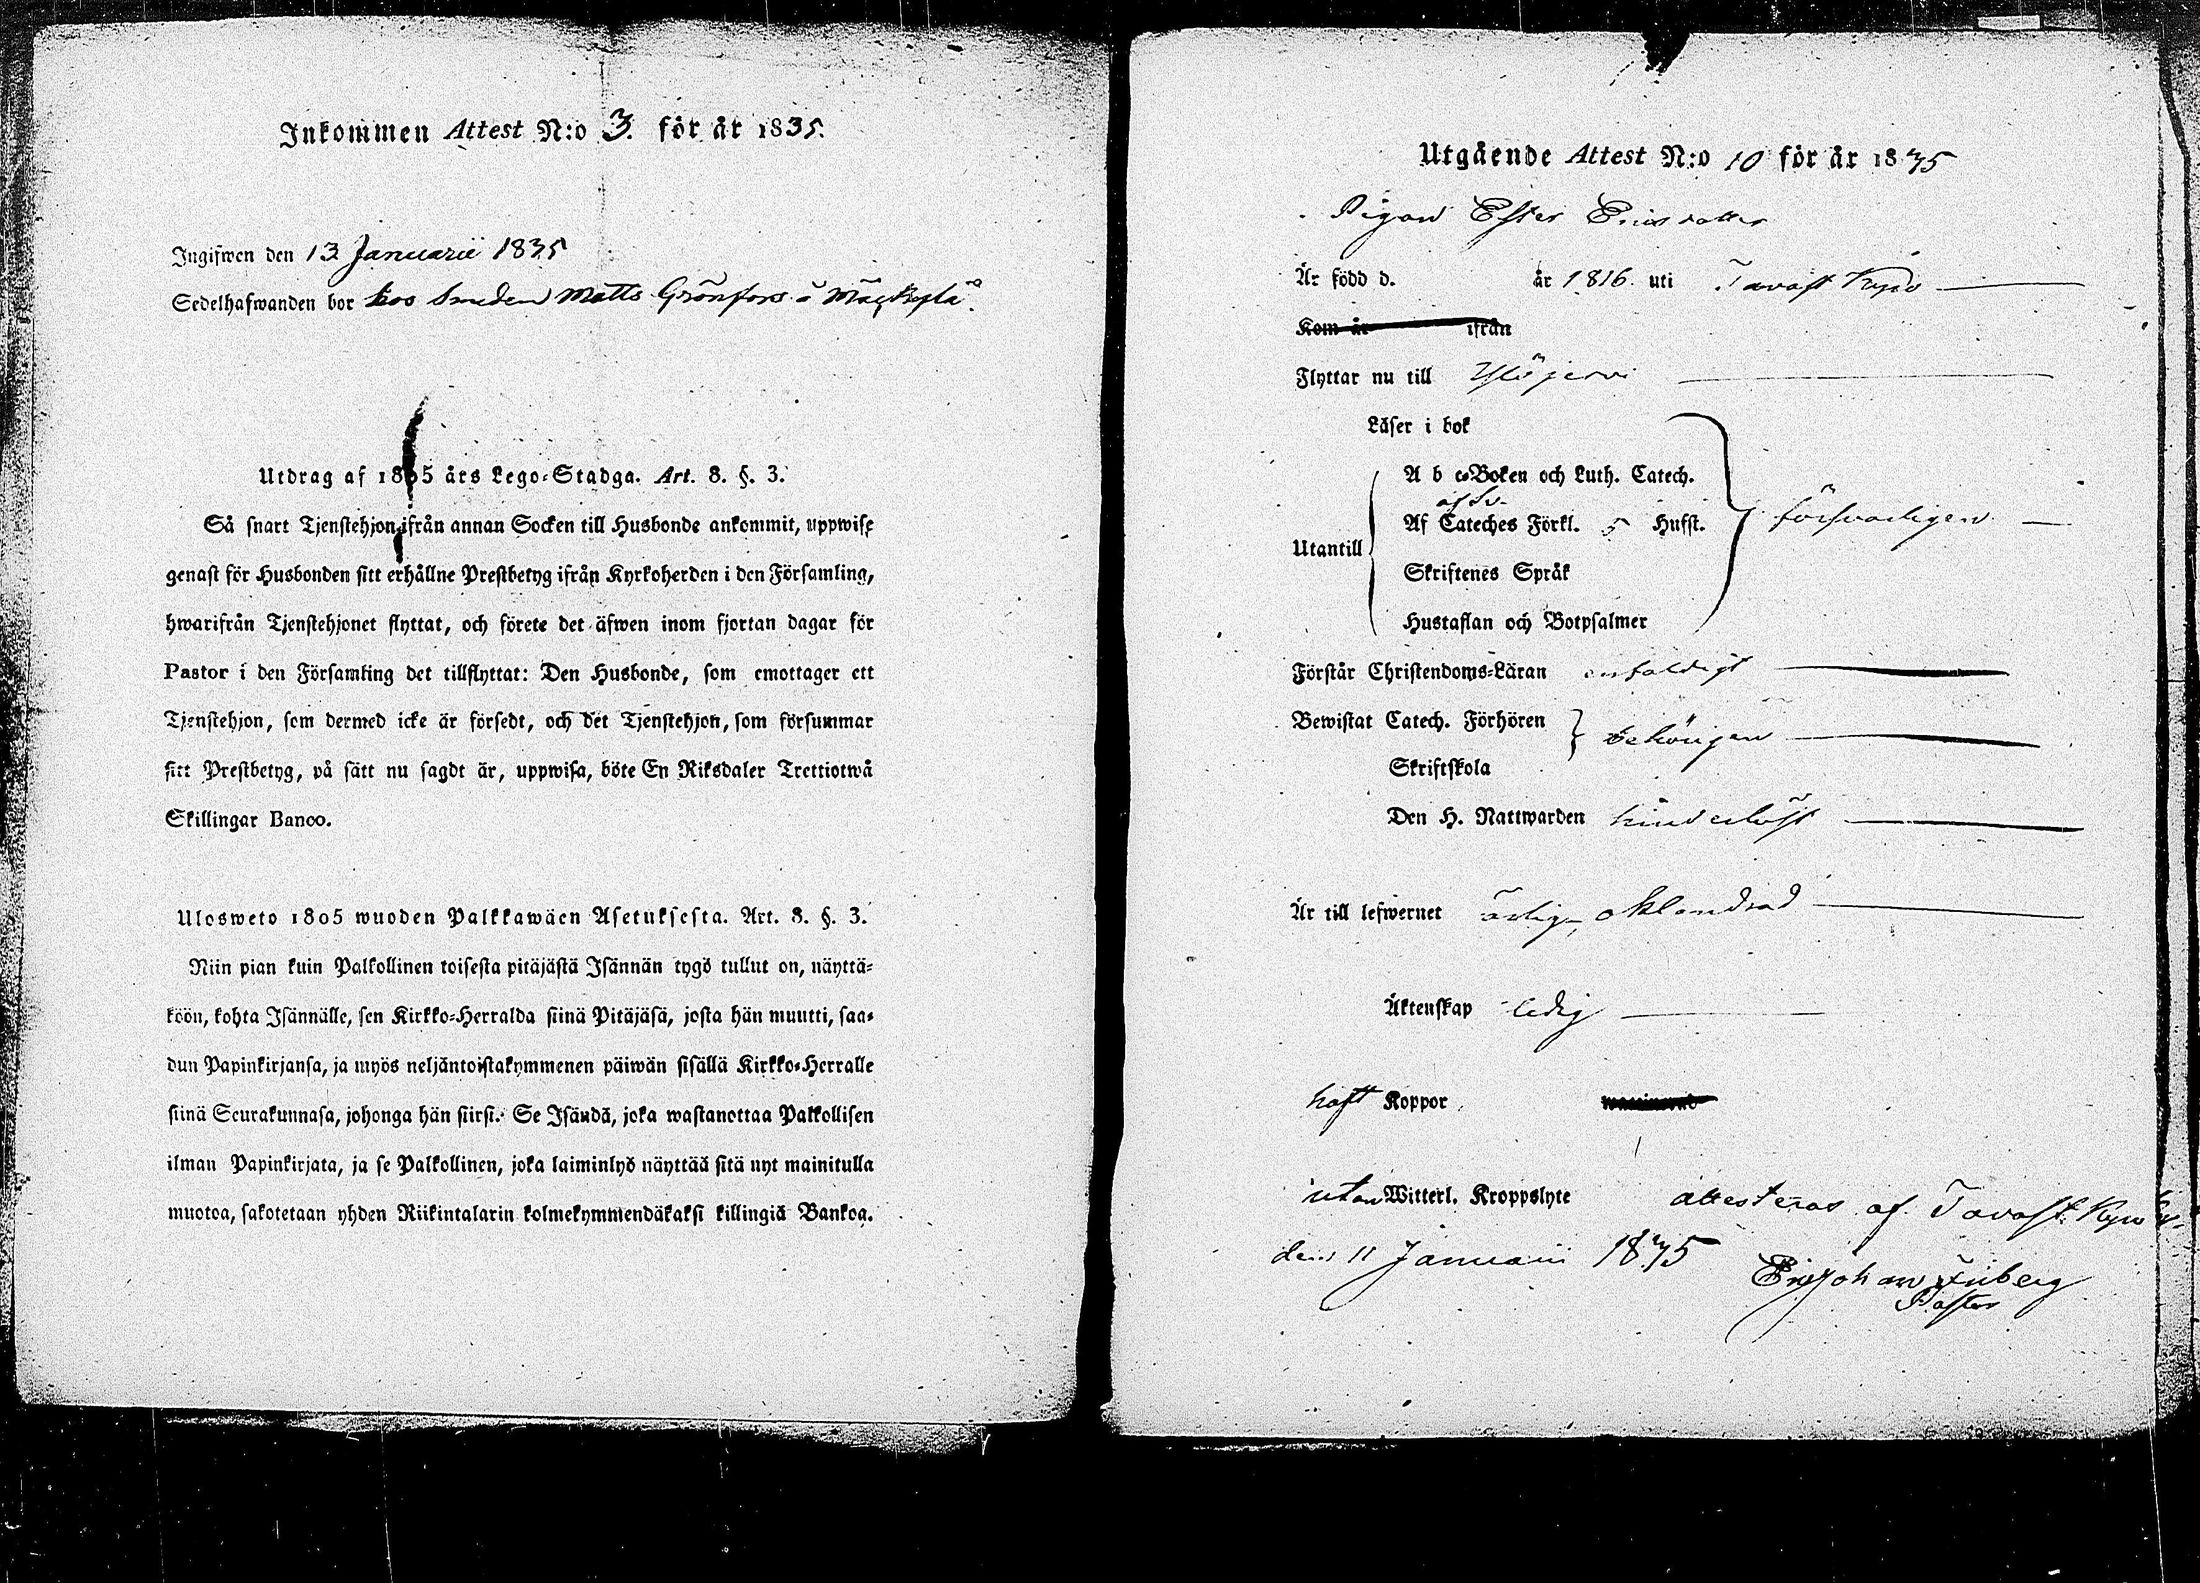 Inkommen Attest N:o 3. för år 1835.
Ingifwen den 13 Januarii 1835
Sedelhafwanden bor hos Smeden Matts Grönfors i Mäckylä.
Utdrag af 1805 års Lego-Stadga. Art. 8. §. 3.
Så snart Tjenstehjon ifrån annan Socken till Husbonde ankommit, uppwise
genast för Husbonden sitt erhållne Prestbetyg ifrån Kyrkoherden i den Församling,
hwarifrån Tjenstehjonet flyttat, och förete det äfwen inom fjortan dagar för
Pastor i den Församling det tillflyttat: Den Husbonde, som emottager ett
Tjenstehjon, som dermed icke är försedt, och det Tjenstehjon, som försummar
sitt Prestbetyg, på sätt nu sagdt är, uppwisa, böte En Riksdaler Trettiotwå
Skillingar Banco.
Ulosweto 1805 wuoden Palkkawäen Asetuksesta. Art. 8. §. 3.
Niin pian kuin Palkollinen toisesta pitäjästä Isännän tygö tullut on, näyttä-
köön, kohta Isännälle, sen Kirkko-Herralda siinä Pitäjäsä, josta hän muutti, saa-
dun Papinkirjansa, ja myös neljäntoistakymmenen päiwän sisällä Kirkko-Herralle
siinä Seurakunnasa, johonga hän siirsi. Se Isändä, joka wastanottaa Palkollisen
ilman Papinkirjata, ja se Palkollinen, joka laiminlyö näyttää sitä nyt mainitulla
muotoa, sakotetaan yhden Riikintalarin kolmekymmendäkaksi killingiä Bankoa.
Utgående Attest N:o 10 för år 1835
Pigan Ester Ericsdotter
Är född d. år 1816 uti Tavast Kyro
Kom år ifrån
Flyttar nu till Ylöjervi
Läser i bok
A b c-Boken och Luth. Catech.
af Sv.
Af Cateches Förkl. 5 Hufst. försvarligen
Utantill
Skriftenes Språk
Hustaflan och Botpsalmer
Förstår Christendoms-Läran enfaldigt
Bewistat Catech. Förhören behörigen
Skriftskola
Den H. Nattwarden hinderlöst
Är till lefwernet ärlig, oklandrad
Äktenskap ledig
haft Koppor
utan Witterl. Kroppslyte attesteras af Tavast Kyro
den 11 Januarii 1835
Eric Johan Friberg
Pastor